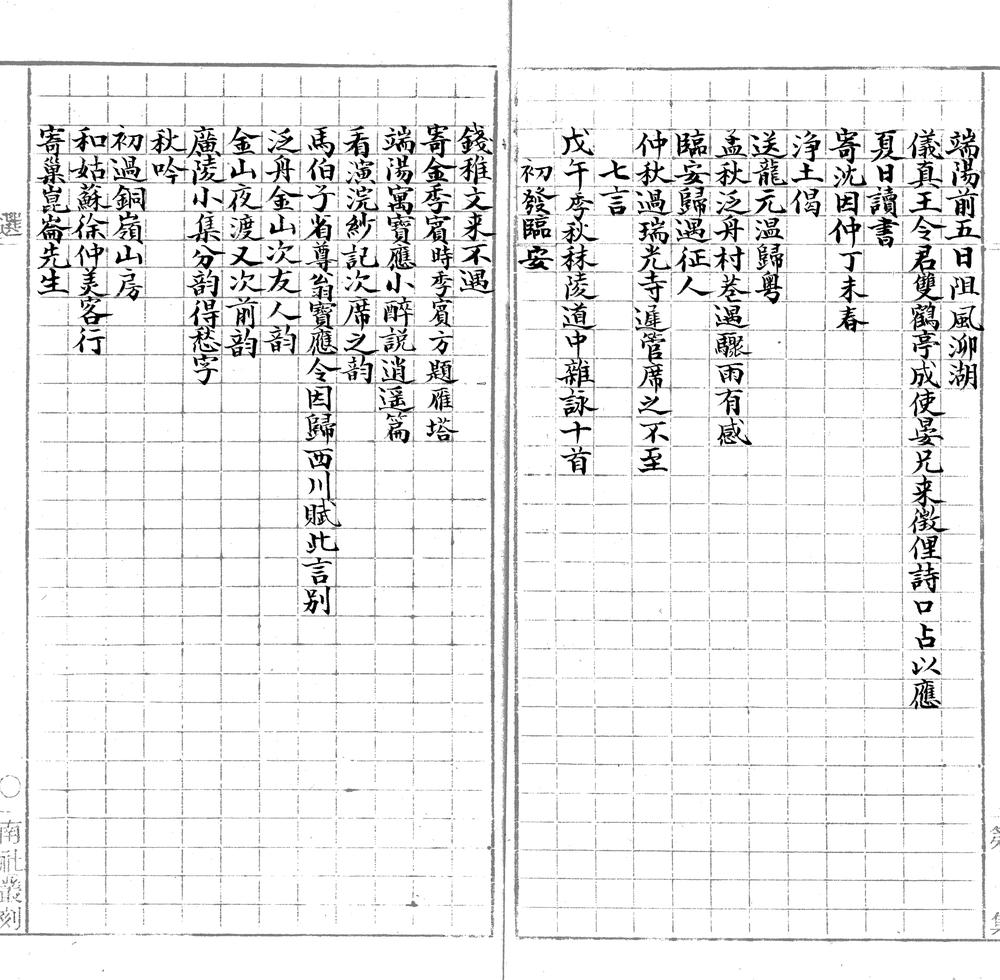 端陽前五日阻風泖湖
儀真王令君雙鶴亭成使晏兄来徵俚詩口占以應
夏日讀書
寄沈因仲丁未春
浄土偈
送龍元温歸粤
孟秋泛舟村巷遇驟雨有感
臨安歸遇征人
仲秋過瑞光寺遲管席之不至
七言
戊午季秋秣陵道中雜詠十首
初發臨安
錢稚文来不遇
寄金季賓時季賓方題雁塔
端陽寓寶應小醉説逍遥篇
看演浣紗記次席之韵
馬伯子省尊翁寶應令因歸西川賦此言别
泛舟金山次友人韵
金山夜渡又次前韵
廣陵小集分韵得愁字
秋吟
初過銅嶺山房
和姑蘇徐仲美客行
寄巢崑崙先生
選
〇南社叢刻
集